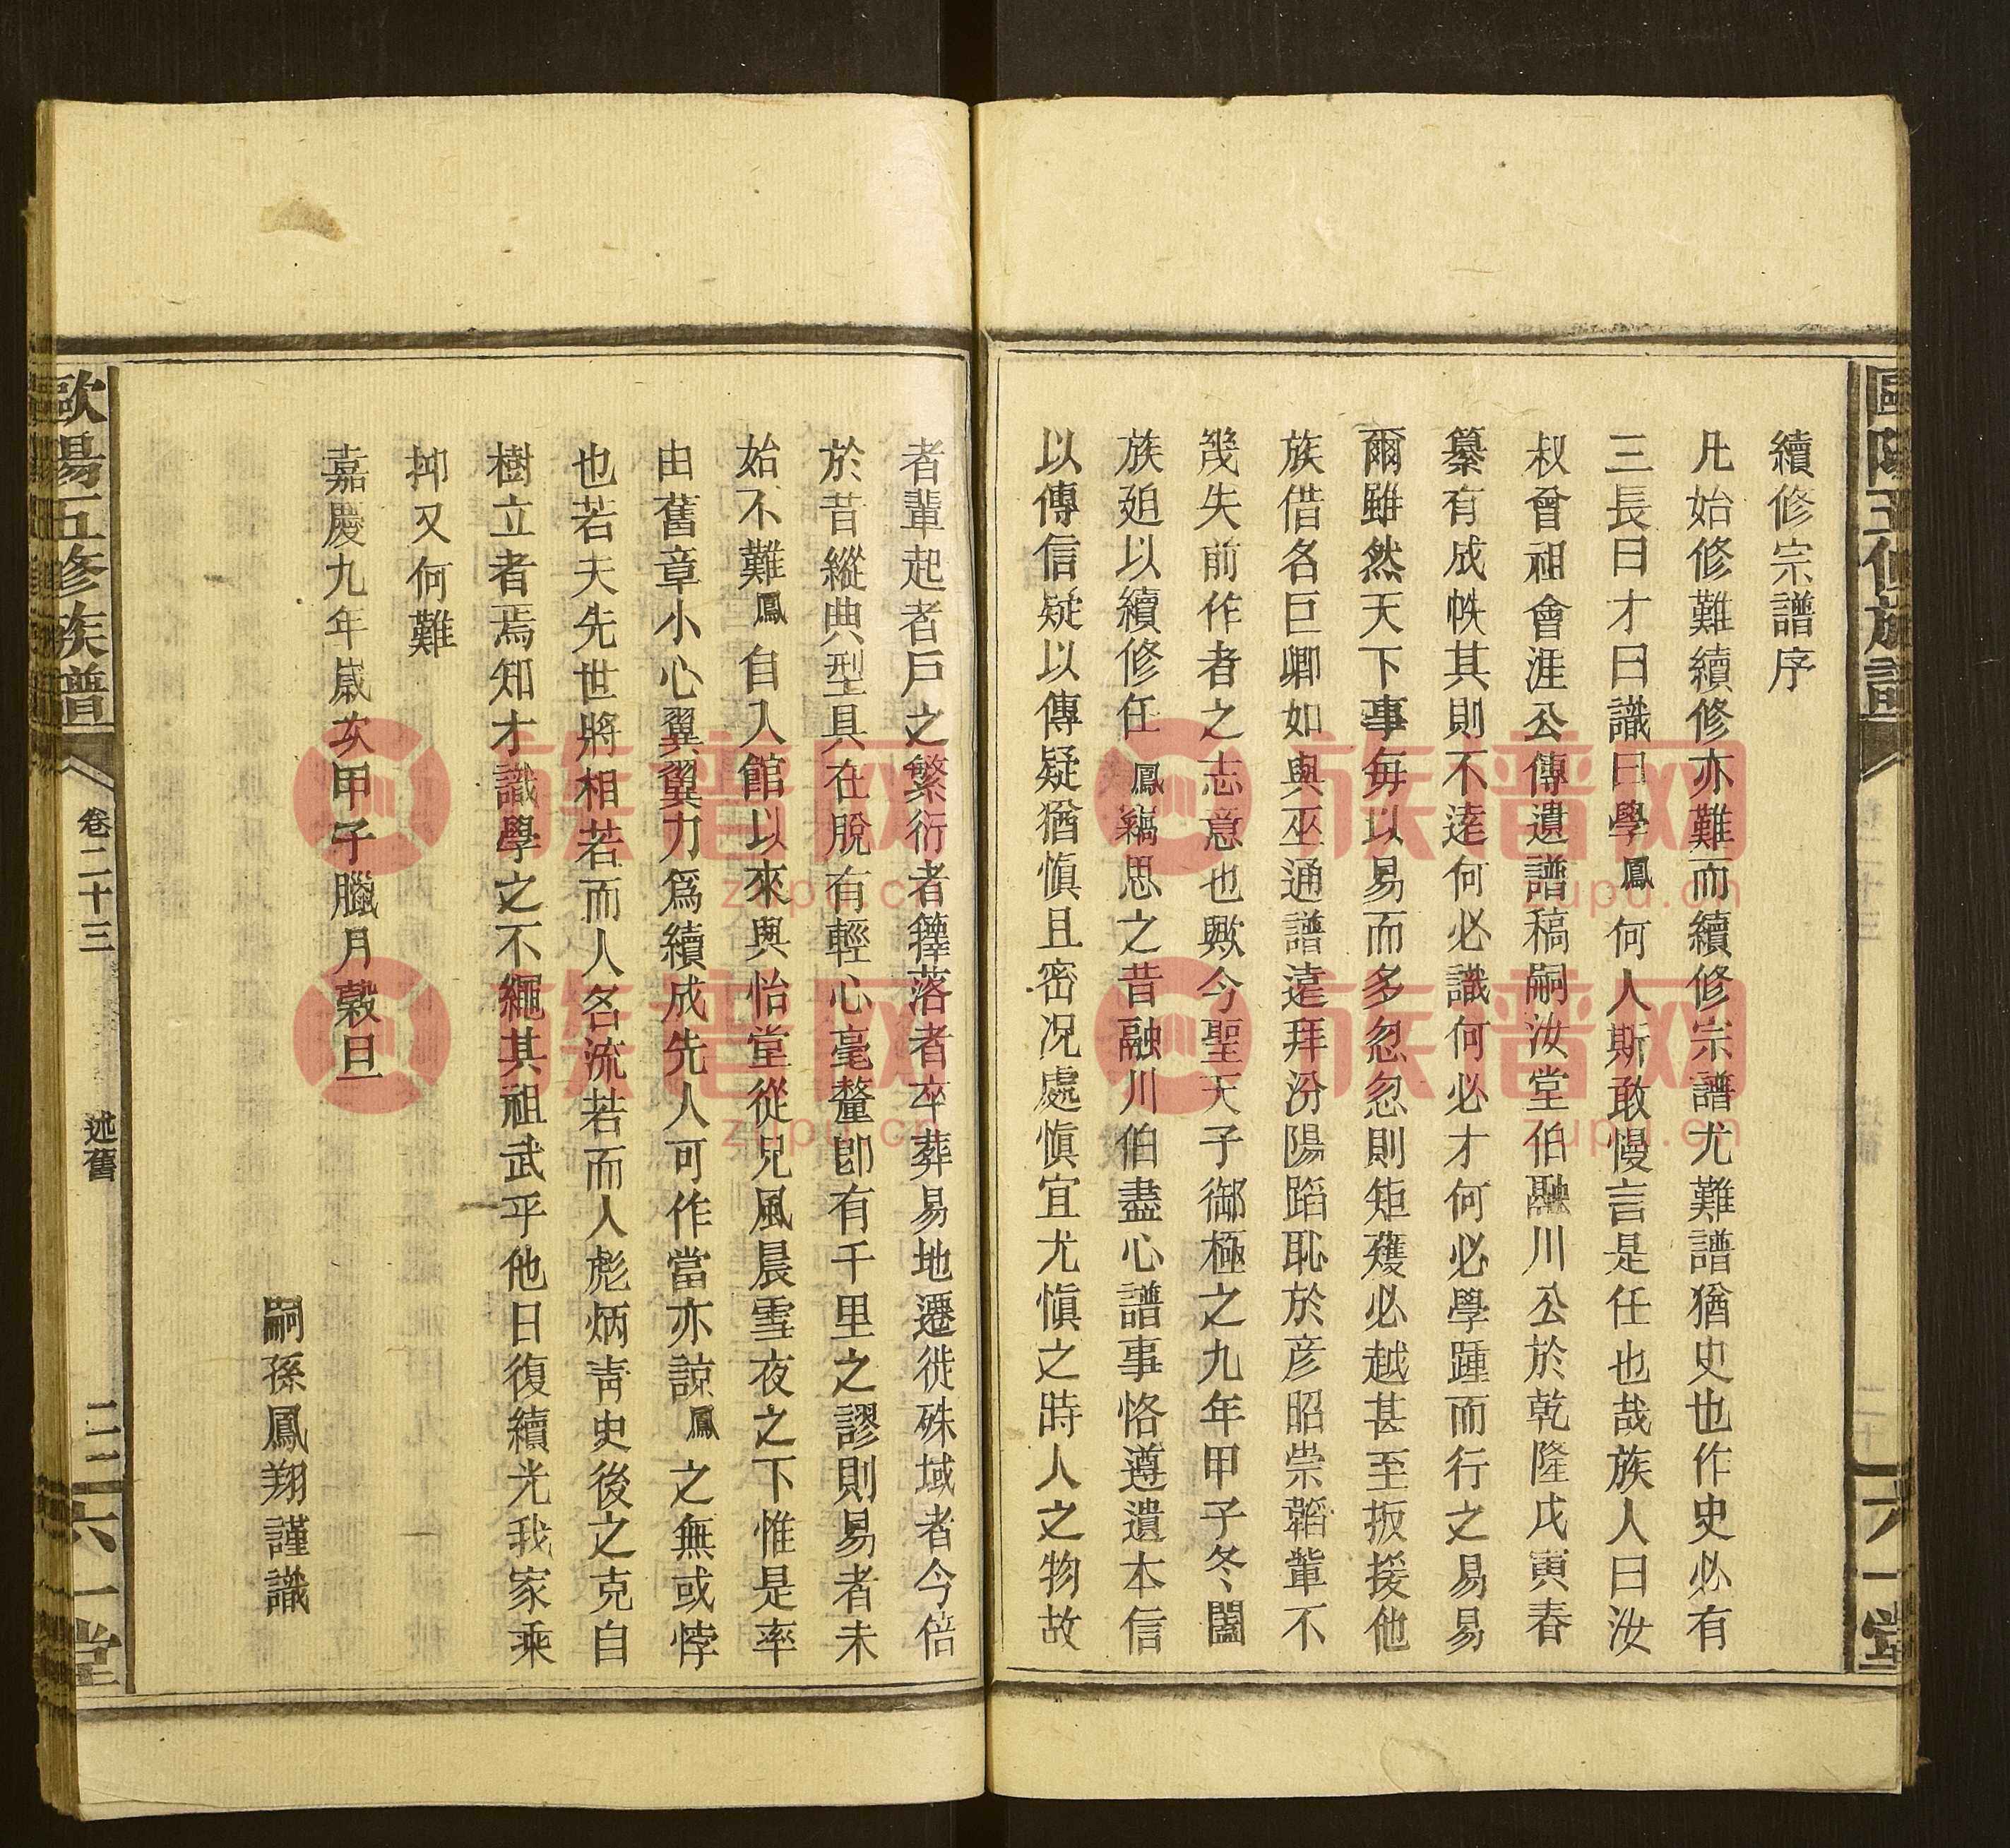 續修宗譜序
凡始修難續修亦難而續修宗譜尤難譜猶史也作史必有
三長曰才曰識曰學鳳何人斯敢慢言是任也哉族人曰汝
叔曾祖會涯公傳遺譜稿嗣汝堂伯融川公於乾隆戊寅春
纂有成帙其則不逺何必識何必才何必學踵而行之易易
爾雖然天下事每以易而多忽忽則矩矱必越甚至扳援他
族借名巨卿如與巫通譜遠拜汾陽蹈恥於彥昭崇韜輩不
幾失前作者之志意也歟今聖天子御極之九年甲子冬闔
族廹以續修任鳳竊思之昔融川伯盡心譜事恪遵遺本信
以傳信疑以傳疑猶愼且密况處愼宜尤愼之時人之物故
者輩起者戶之繁衍者籜落者卒葬易地遷徙硃域者今倍
於昔縱典型具在脫有輕心毫釐卽有千里之謬則易者未
始不難鳳自入館以來與怡堂從兄風晨雪夜之下惟是率
由舊章小心翼翼力爲續成先人可作當亦諒鳳之無或悖
也若夫先世將相若而人名流若而人彪炳靑史後之克自
樹立者焉知才識學之不繩其祖武乎他日復續光我家乘
抑又何難
嘉慶九年嵗次甲子臘月穀旦
嗣孫鳳翔謹識
歐陽五修族譜
卷二十三
述舊
二三
六一堂
族譜网
zupu.cn